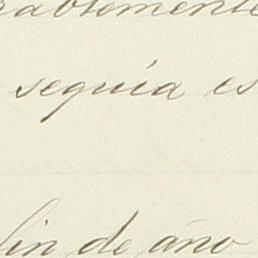 rablemente
seguía es
fin de año